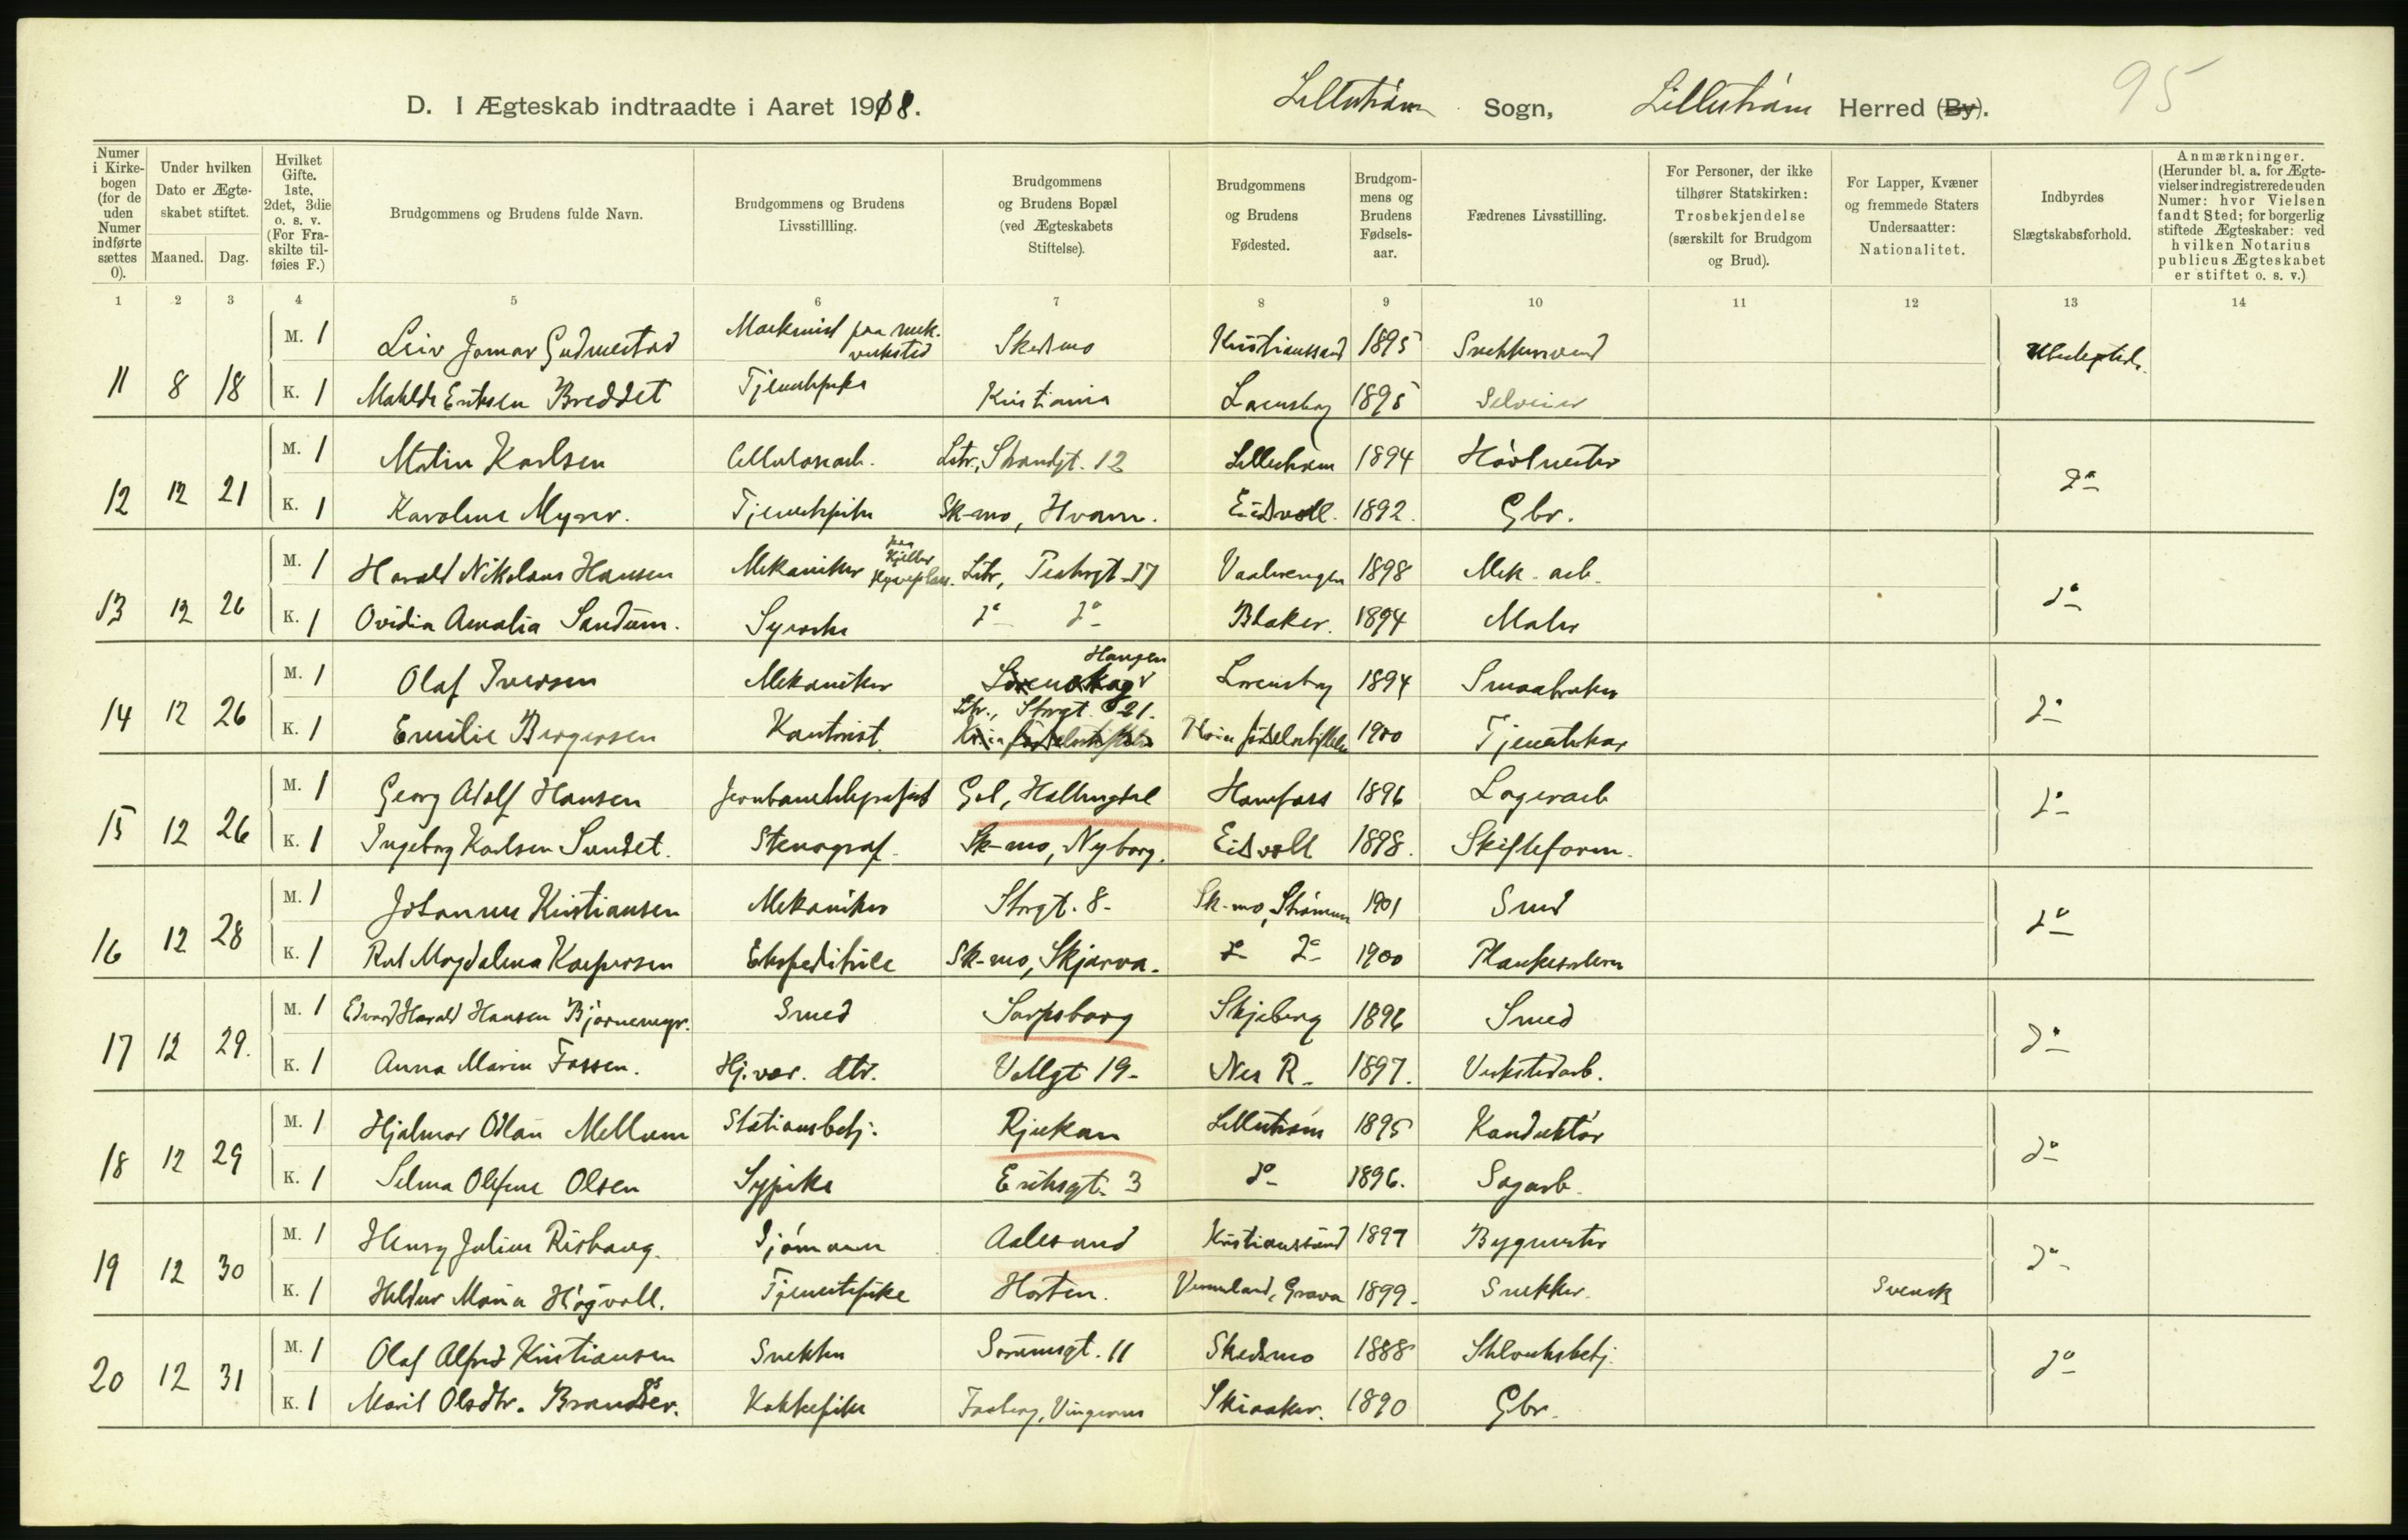 95
D. I Ægteskab indtraadte i Aaret 1918. Lillestrøm Sogn, Lillestrøm Herred (By).
Numer i Kirkebogen (for de uden Numer indførte sættes 0).
Under hvilken Dato er Ægteskabet stiftet.
Maaned. Dag.
Hvilket Gifte. 1ste, 2det, 3die o. s. v. (For Fraskilte tilføies F.)
Brudgommens og Brudens fulde Navn.
Brudgommens og Brudens Livsstillling.
Brudgommens og Brudens Bopæl (ved Ægteskabets Stiftelse).
Brudgommens og Brudens Fødested.
Brudgommens og Brudens Fødselsaar.
Fædrenes Livsstilling.
For Personer, der ikke tilhører Statskirken: Trosbekjendelse (særskilt for Brudgom og Brud).
For Lapper, Kvæner og fremmede Staters Undersaatter: Nationalitet.
Indbyrdes Slægtskabsforhold.
Anmærkninger. (Herunder bl. a. for Ægtevielser indregistrerede uden Numer: hvor Vielsen fandt Sted; for borgerlig stiftede Ægteskaber: ved hvilken Notarius publicus Ægteskabet er stiftet o. s. v.)
1 2 3 4 5 6 7 8 9 10 11 12 13 14
M. 1 Leiv Jomar Gudmestad Maskinist paa mek. verksted Skedsmo Kristianssand 1895 Ubeslegtede
11 8 18 K. 1 Eriksen Breddet Tjenestepike Kristiania Lørenskog 1895 Selveier
M. 1 Karlsen Cellulosearb. Lstr., Strandgt. 12 Lillestrøm 1894 Høvlmester
12 12 21 K. 1 Karoline Myrer. Tjenestepike Sk-mo, Hvam. Eidsvoll. 1892. Gbr. do
M. 1 Harald Nikolaus Hansen Mekaniker paa Kjeller Lstr, Teatergt. 17 Vaalerengen 1898 Mek. arb.
13 12 26 K. 1 Ovidia Amalia Sandum. Syerske do do Blaker. 1894 Maler do
M. 1 Olaf Iversen Mekaniker Lørenskog Lørenskog 1894 Smaabruker
Lstr., Storgt. 21.
14 12 26 K. 1 Emilie Bergersen Kontorist. Kr.ia fødselsstiftelse Kr.ia fødselsstiftelse 1900 Tjenestekar do
M. 1 Georg Adolf Hansen Jernbanetelegrafist Gol, Hallingdal Hønefoss 1896 Lagerarb
15 12 26 K. 1 Ingeborg Karlsen Sundet. Stenograf. Sk-mo, Nyborg. Eidsvoll 1898. Skifteform. do
M. 1 Johannes Kristiansen Mekaniker Storgt. 8. Sk-mo, Strømmen 1901 Smed
16 12 28 K. 1 Rut Magdalena Kaspersen Ekspeditrice Sk-mo, Skjærva. do do 1900 do
M. 1 Edvard Harald Hansen Bjørnemyr. Smed Sarpsborg Skjeberg 1896 Smed
17 12 29. K. 1 Anna Marie Fossen. Hj.vær. dtr. Vollgt 19. Nes R. 1897. Verkstedarb. do
M. 1 Hjalmar Odlau Mellum Stationsbetj. Rjukan Lillestrøm 1895 Konduktør
18 12 29 K. 1 Selma Olefine Olsen Sypike Eriksgt. 3 do 1896. Sagarb. do
M. 1 Henry Julius Rishaug. Sjømann Aalesund Kristianssund 1897 Bygmester
19 12 30 K. 1 Maria Høgvall. Tjenestepike Horten. Vermland, Grava 1899. Snekker. Svensk do
M. 1 Olaf Alfred Kristiansen Snekker Sørumsgt. 11 Skedsmo 1888
20 12 31 K. 1 Marit Olsdtr. Kokkepike Faaberg, Vingerom Skiaaker. 1890 Gbr. do